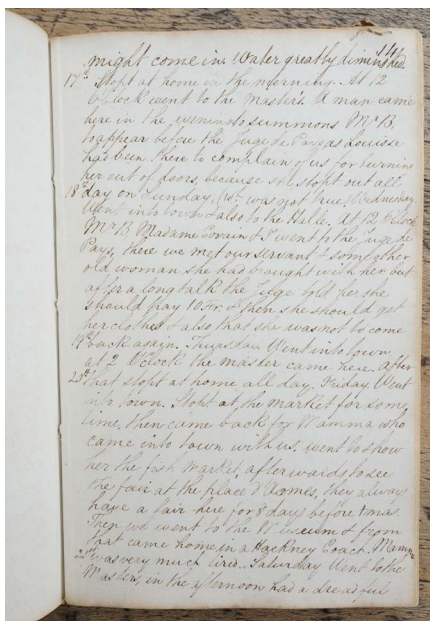 141
might come in. Water greatly diminished.
17th Stopt at home in the morning. At 12
O'Clock went to the Master's. A man came
here in the evening to summons Mr B.
to appear before the Juge de Pays as Louisa
had been there to complain of us for turning
her out of doors, because she stopt out all
18th day on Sunday. (wh. was not true) Wednesday.
Went into town & also to the Halle. At 12 O'Clock
Mr B Madame & I went to the Juge de
Pays, there we met our servant & some other
old woman she had brought with her but
after a long talk the Juge told her she
should pay 10 Fr. & then she should get
her clothes & also that she was not to come
19th back again. Thursday. Went into town
at 2 O'Clock the master came here. After
20th that stopt at home all day. Friday. Went
into town. Stopt at the market for some
time, then came back for Mamma who
came into town with us, went to show
her the fish market afterwards to see
the fair at the place d'Armes, they always
have a fair here for 8 days before Xmas.
Then we went to the & from
that came home in a Hackney Coach. Mamma
21st was very much tired. Saturday Went to the
Masters, in the afternoon had a dreadful